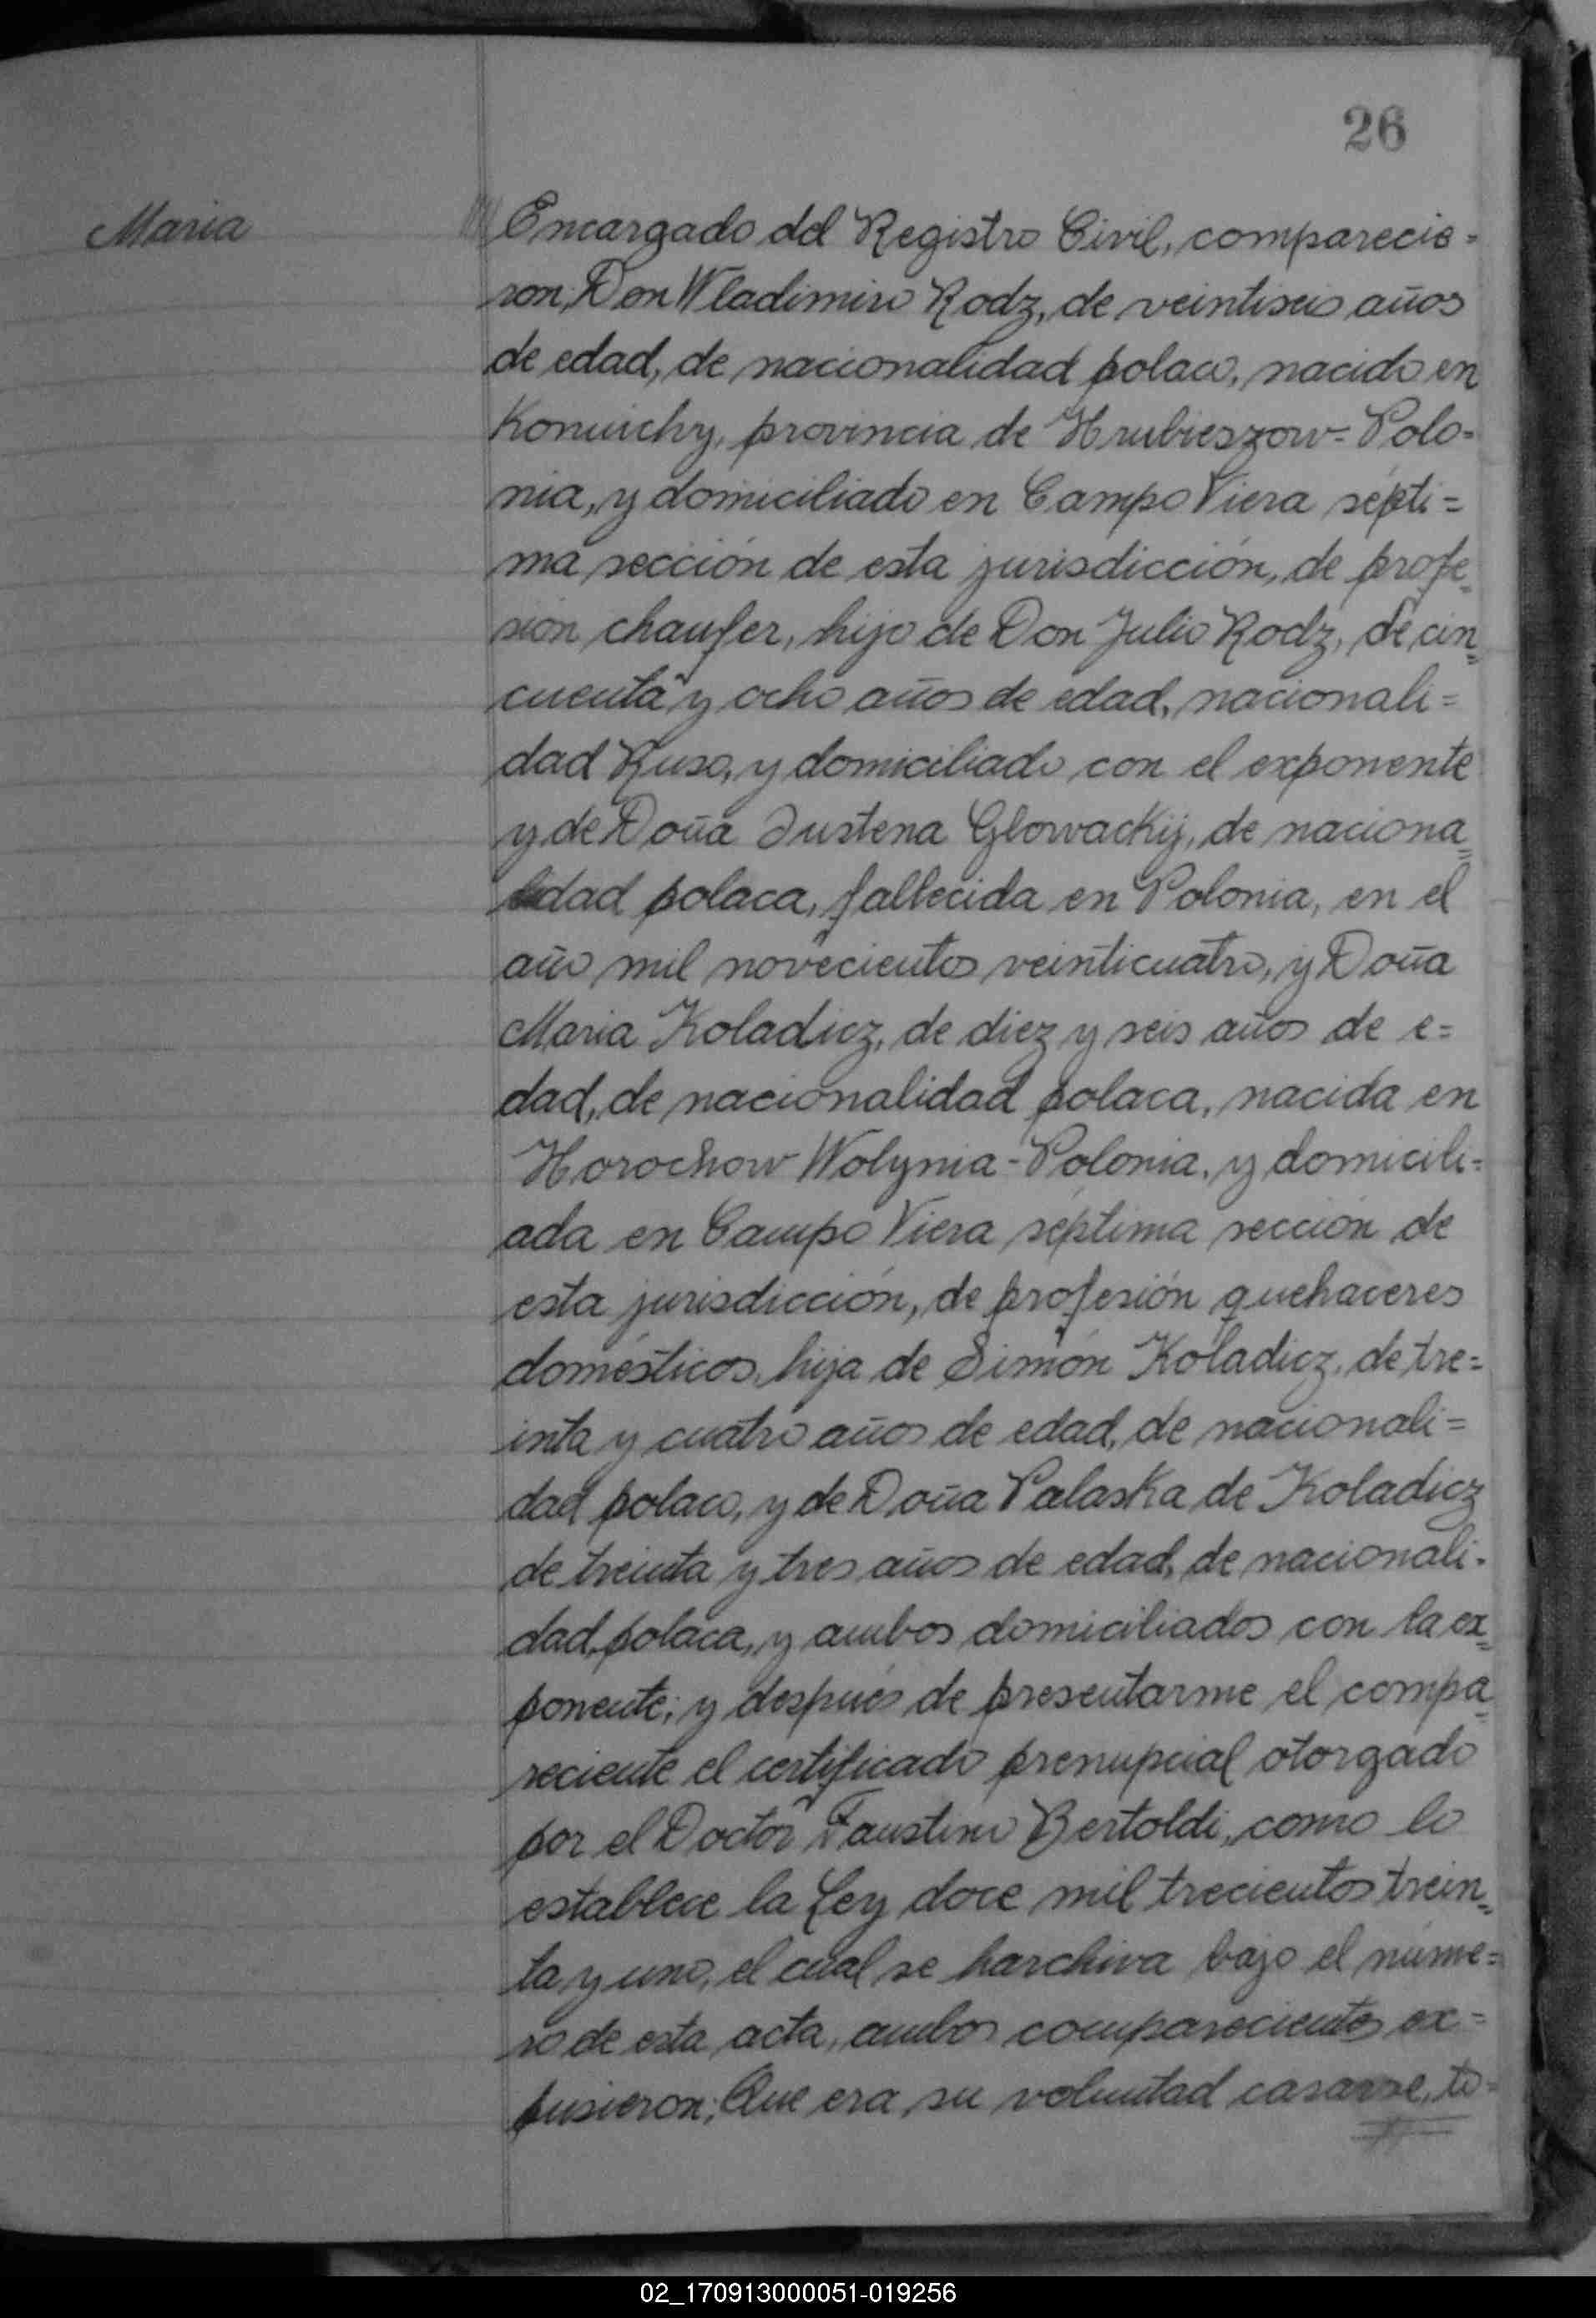 26
Maria
Encargado del Registro Civil, comparecie=
ron; Don Wladimiro Rodz, de veintiseis años
de edad, de nacionalidad polaco, nacido en
Koniuchy, provincia de Hrubieszow=Polo=
nia, y domiciliado en Campo Viera sépti=
ma sección de esta jurisdicción, de profe=
sión chaufer, hijo de Don Julio Rodz, de cin=
cuenta y ocho años de edad, nacionali=
dad Ruso, y domiciliado con el exponente
y de Doña Justena Glowackij, de naciona=
lidad polaca, fallecida en Polonia, en el
año mil novecientos veinticuatro, y Doña
Maria Koladicz, de diez y seis años de e=
dad, de nacionalidad polaca, nacida en
Horochow Wolynia-Polonia, y domicili=
ada en Campo Viera séptima sección de
esta jurisdicción, de profesión quehaceres
domésticos, hija de Simón Koladicz, de tre=
inta y cuatro años de edad, de nacionali=
dad polaco, y de Doña Palaska de Koladicz
de treinta y tres años de edad, de nacionali-
dad polaca, y ambos domiciliados con la ex=
ponente; y después de presentarme el compa=
reciente el certificado prenupcial otorgado
por el Doctor Faustino Bertoldi, como lo
establece la Ley doce mil trecientos trein=
ta y uno, el cual se harchiva bajo el núme=
ro de esta acta, ambos comparecientes ex=
pusieron; Que era su voluntad casarse, to=
02_170913000051-019256